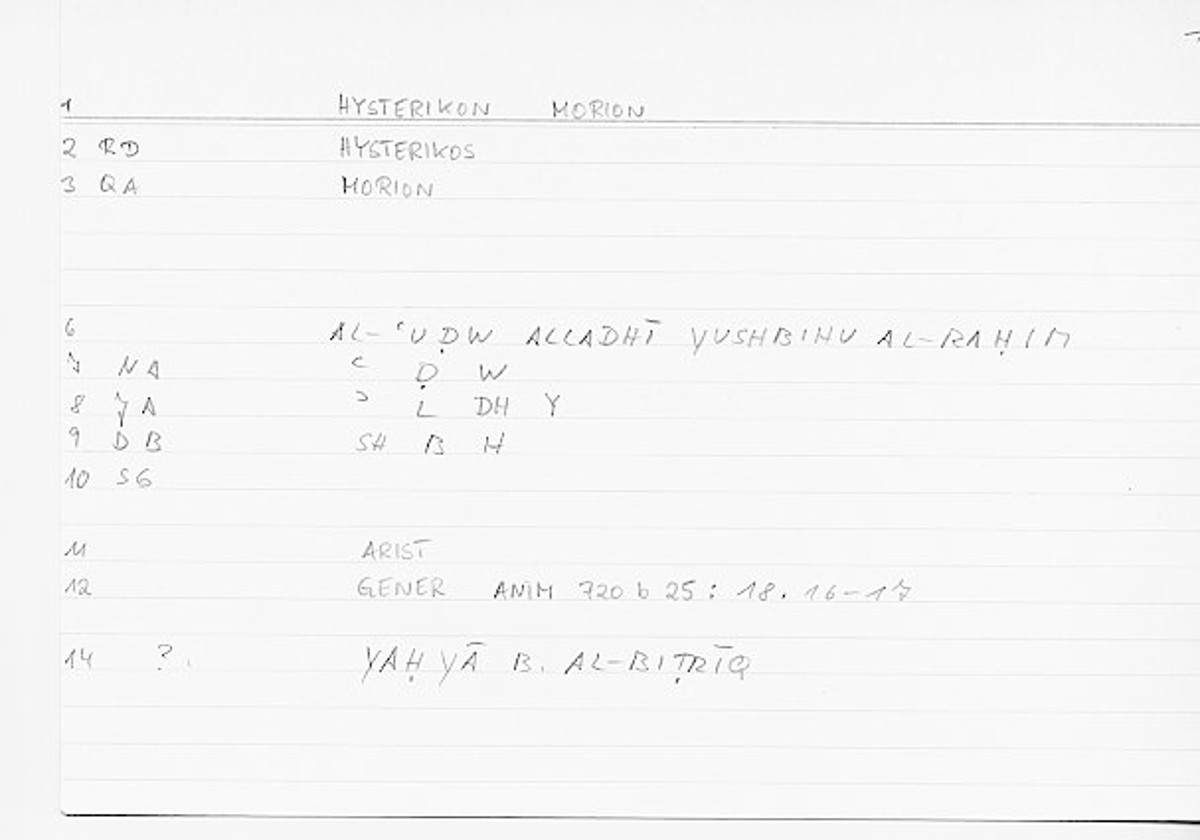 1 HYSTERIKON MORION
2 RD HYSTERIKOS
3 QA MORION
6 AL-ʿUḌW ALLADHĪ YUSHBIHU AL-RAḤIM
7 NA ʿ Ḍ W
8 JA ʾ L DH Y
9 DB SH B H
10 SG
11 ARIST
12 GENER ANIM 720 b 25 : 18. 16-17
14 ?. YAḤYĀ B. AL-BIṬRĪQ